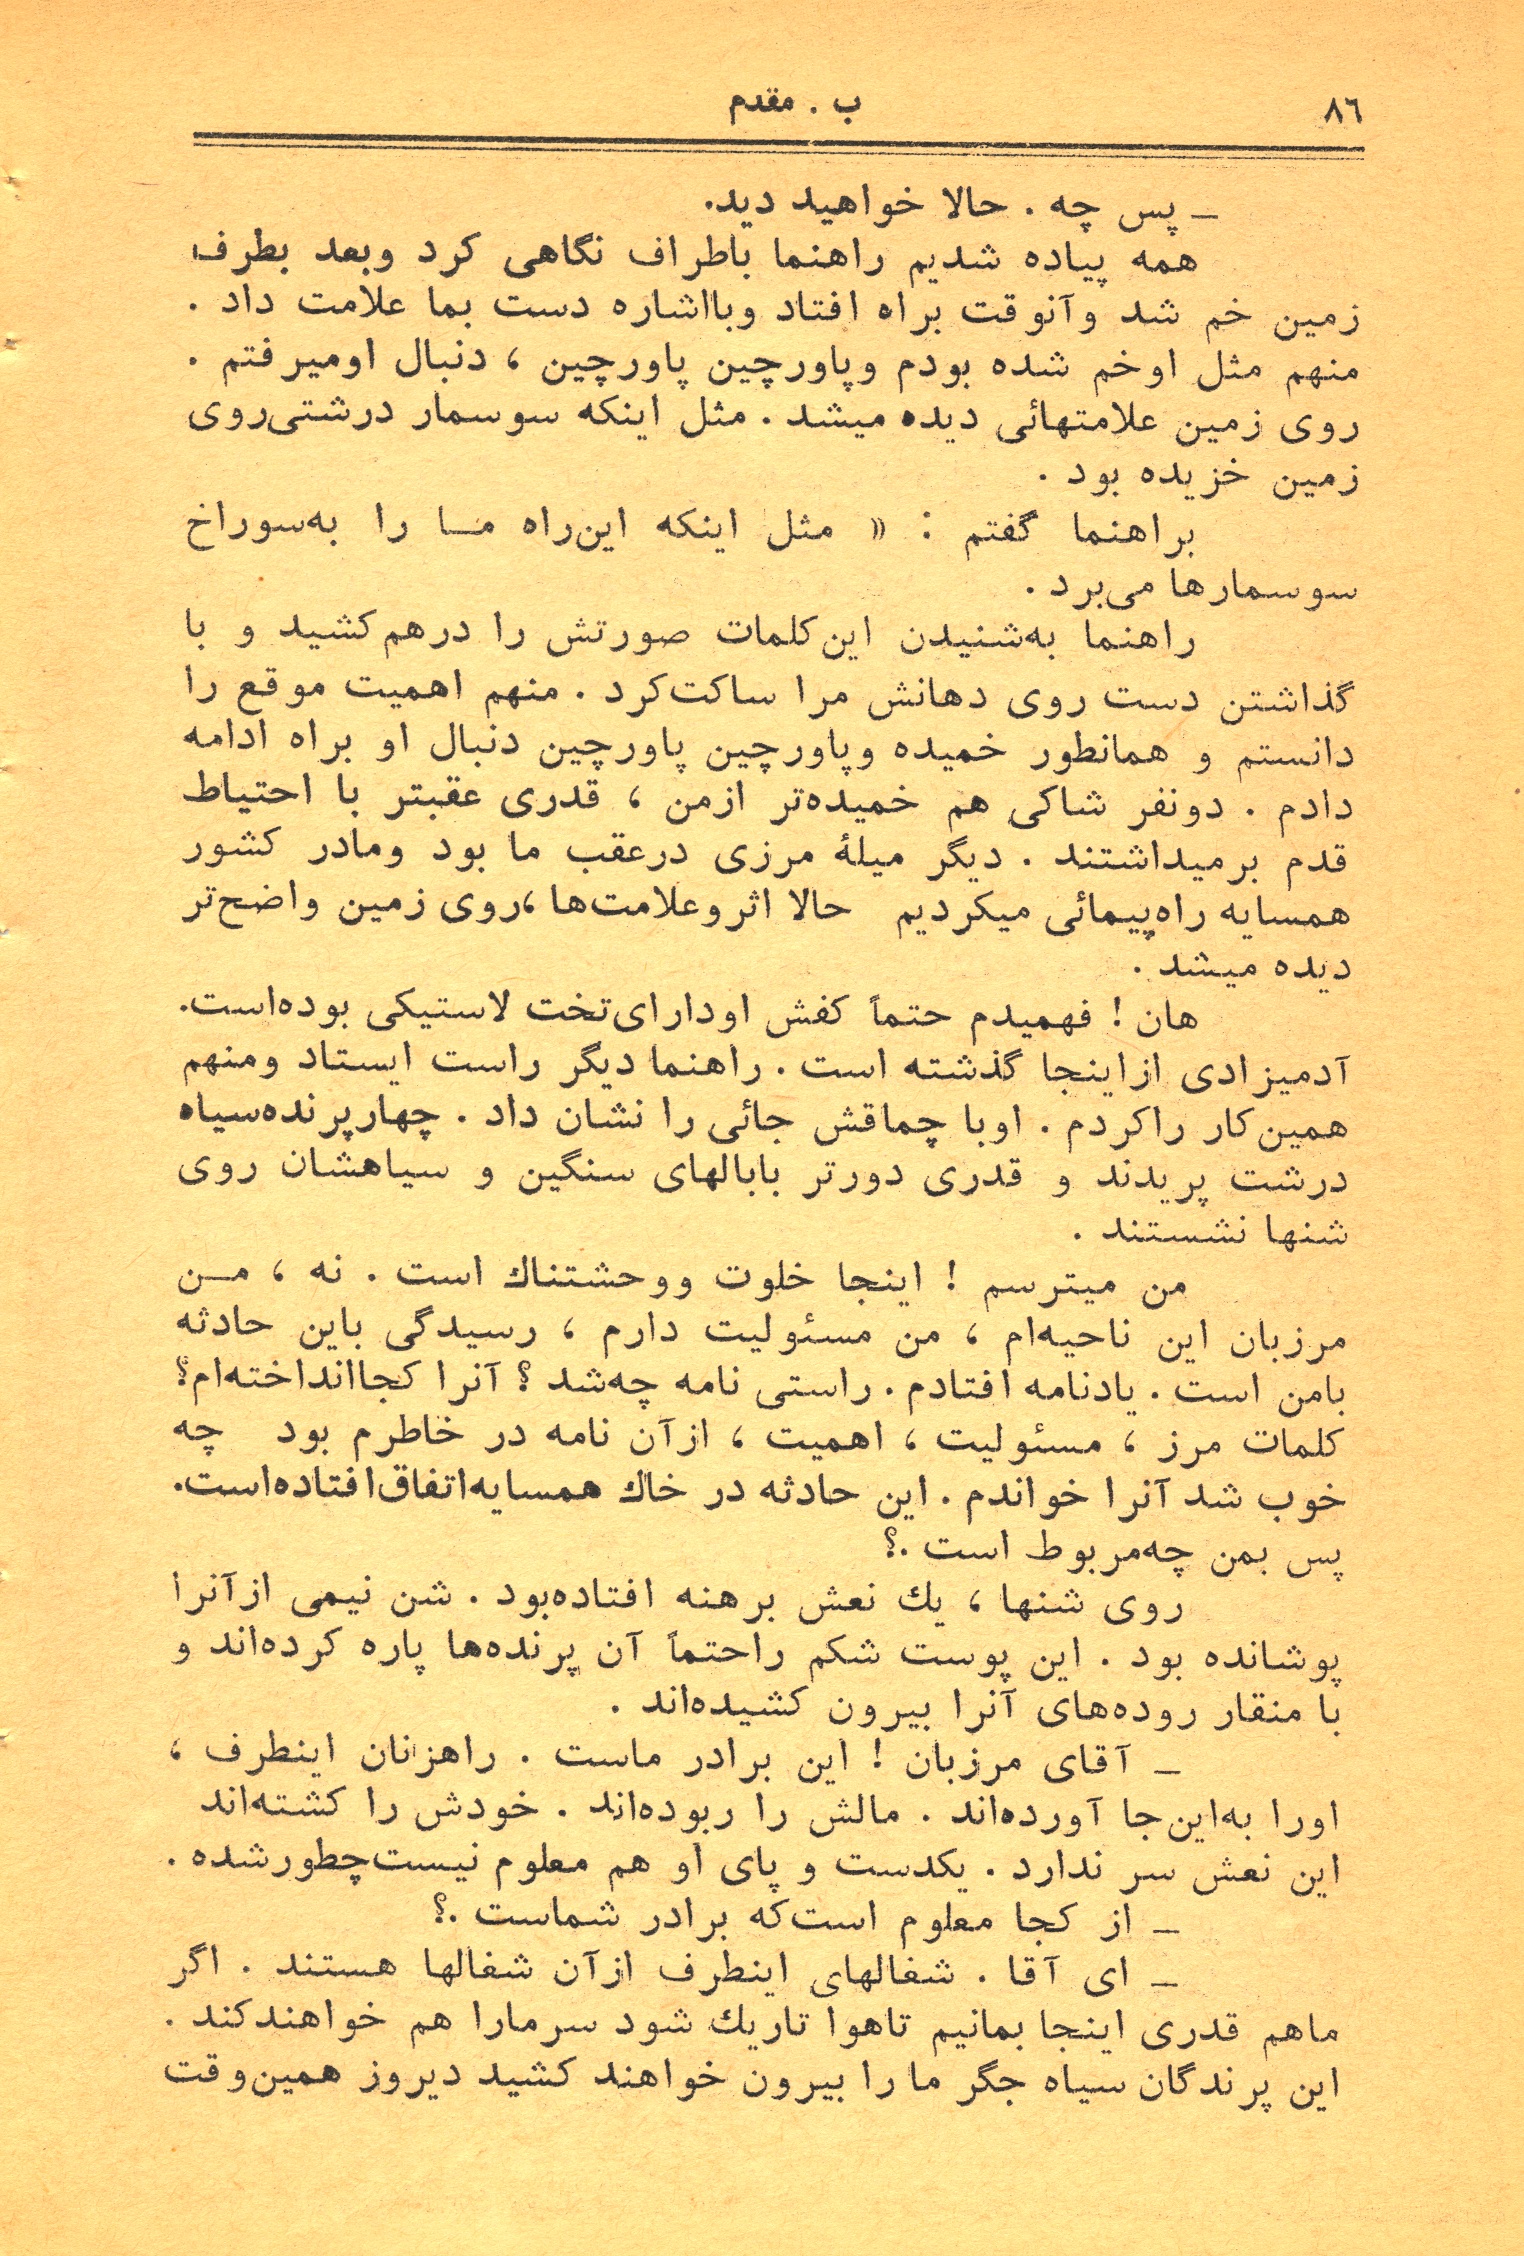 ۸٦
ب . مقدم
ـ پس چه . حالا خواهید دید.
همه پیاده شدیم راهنما باطراف نگاهی کرد وبعد بطرف
زمین خم شد وآنوقت براه افتاد وبااشاره دست بما علامت داد .
منهم مثل اوخم شده بودم وپاورچین پاورچین ، دنبال اومیرفتم .
روی زمین علامتهائی دیده میشد . مثل اینکه سوسمار درشتی‌روی
زمین خزیده بود .
براهنما گفتم : « مثل اینکه این‌راه مـا را به‌سوراخ
سوسمارها می‌برد .
راهنما به‌شنیدن این‌کلمات صورتش را درهم‌کشید و با
گذاشتن دست روی دهانش مرا ساکت‌کرد . منهم اهمیت موقع را
دانستم و همانطور خمیده وپاورچین پاورچین دنبال او براه ادامه
دادم . دونفر شاکی هم خمیده‌تر ازمن ، قدری عقبتر با احتیاط
قدم برمیداشتند . دیگر میلهٔ مرزی درعقب ما بود ومادر کشور
همسایه راه‌پیمائی میکردیم حالا اثروعلامت‌ها،روی زمین واضح‌تر
دیده میشد .
هان ! فهمیدم حتماً کفش اودارای‌تخت لاستیکی بوده‌است.
آدمیزادی ازاینجا گذشته است . راهنما دیگر راست ایستاد ومنهم
همین‌کار راکردم . اوبا چماقش جائی را نشان داد . چهارپرنده‌سیاه
درشت پریدند و قدری دورتر بابالهای سنگین و سیاهشان روی
شنها نشستند .
من میترسم ! اینجا خلوت ووحشتناك است . نه ، مـن
مرزبان این ناحیه‌ام ، من مسئولیت دارم ، رسیدگی باین حادثه
بامن است . یادنامه افتادم . راستی نامه چه‌شد ؟ آنرا کجاانداخته‌ام؟
کلمات مرز ، مسئولیت ، اهمیت ، ازآن نامه در خاطرم بود چه
خوب شد آنرا خواندم . این حادثه در خاك همسایه‌اتفاق‌افتاده‌است.
پس بمن چه‌مربوط است .؟
روی شنها ، یك نعش برهنه افتاده‌بود . شن نیمی ازآنرا
پوشانده بود . این پوست شکم راحتماً آن پرنده‌ها پاره کرده‌اند و
با منقار روده‌های آنرا بیرون کشیده‌اند .
ـ آقای مرزبان ! این برادر ماست . راهزنان اینطرف ،
اورا به‌این‌جا آورده‌اند . مالش را ربوده‌اند . خودش را کشته‌اند
این نعش سر ندارد . یکدست و پای او هم معلوم نیست‌چطورشده .
ـ از کجا معلوم است‌که برادر شماست .؟
ـ ای آقا . شغالهای اینطرف ازآن شغالها هستند . اگر
ماهم قدری اینجا بمانیم تاهوا تاریك شود سرمارا هم خواهندکند .
این پرندگان سیاه جگر ما را بیرون خواهند کشید دیروز همین‌وقت